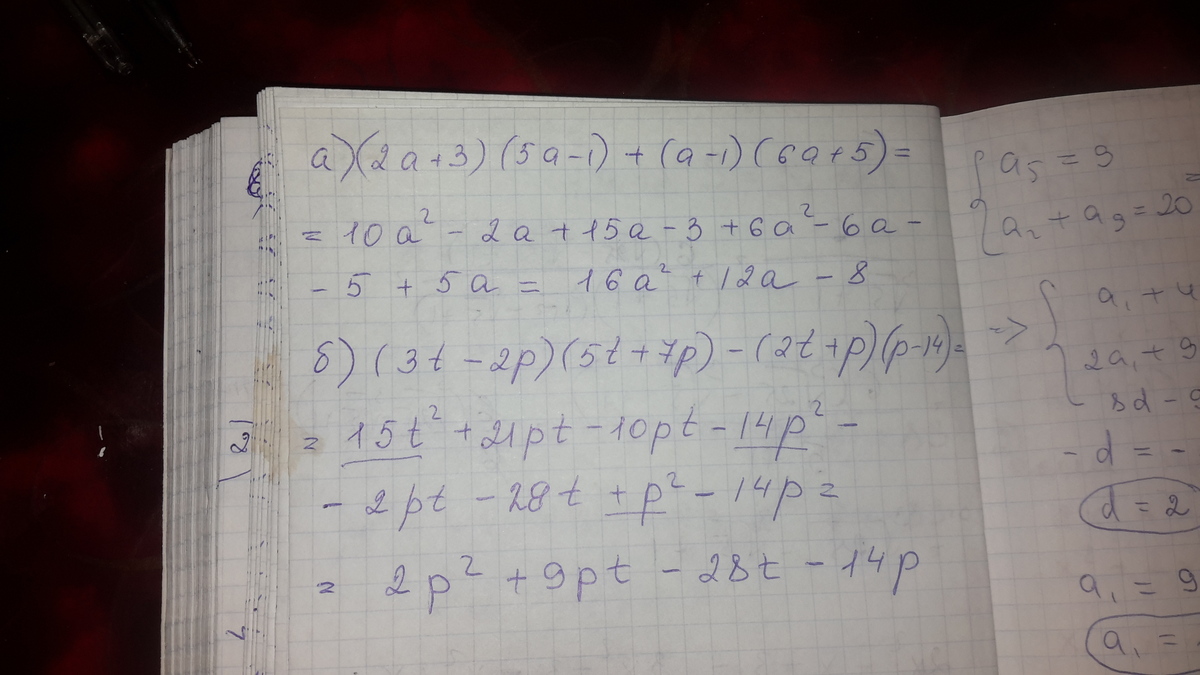 а) (2a+3) (5a-1) + (a-1) (6a+5) =
= 10a² - 2a + 15a - 3 + 6a² - 6a -
- 5 + 5a = 16a² + 12a - 8
б) (3t - 2p) (5t + 7p) - (2t + p) (p - 14) =
= 15t² + 21pt - 10pt - 14p² -
- 2pt - 28t + p² - 14p =
= 2p² + 9pt - 28t - 14p
2)
a₅ = 9
a₂ + a₉ = 20 =
=> a₁ + 4
2a₁ + 9
8d - 9
- d = -
d = 2
a₁ = 9
a₁ =